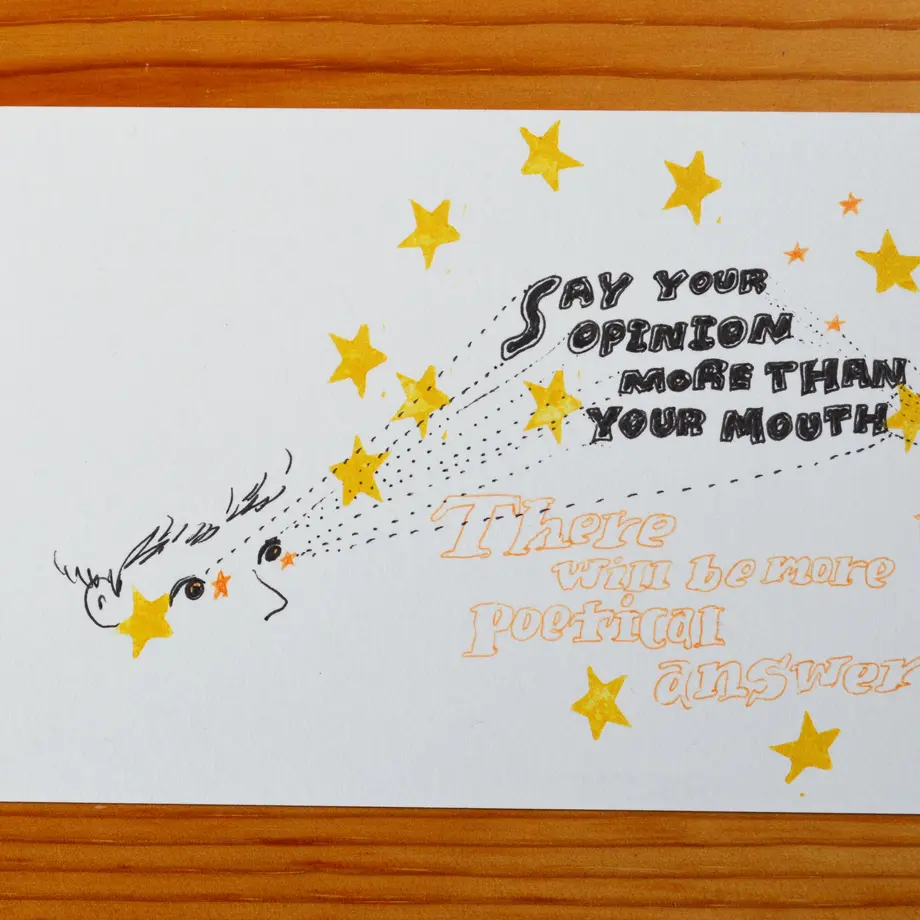 SAY YOUR
OPINION
MORE THAN
YOUR MOUTH
There
will be more
poetical
answer